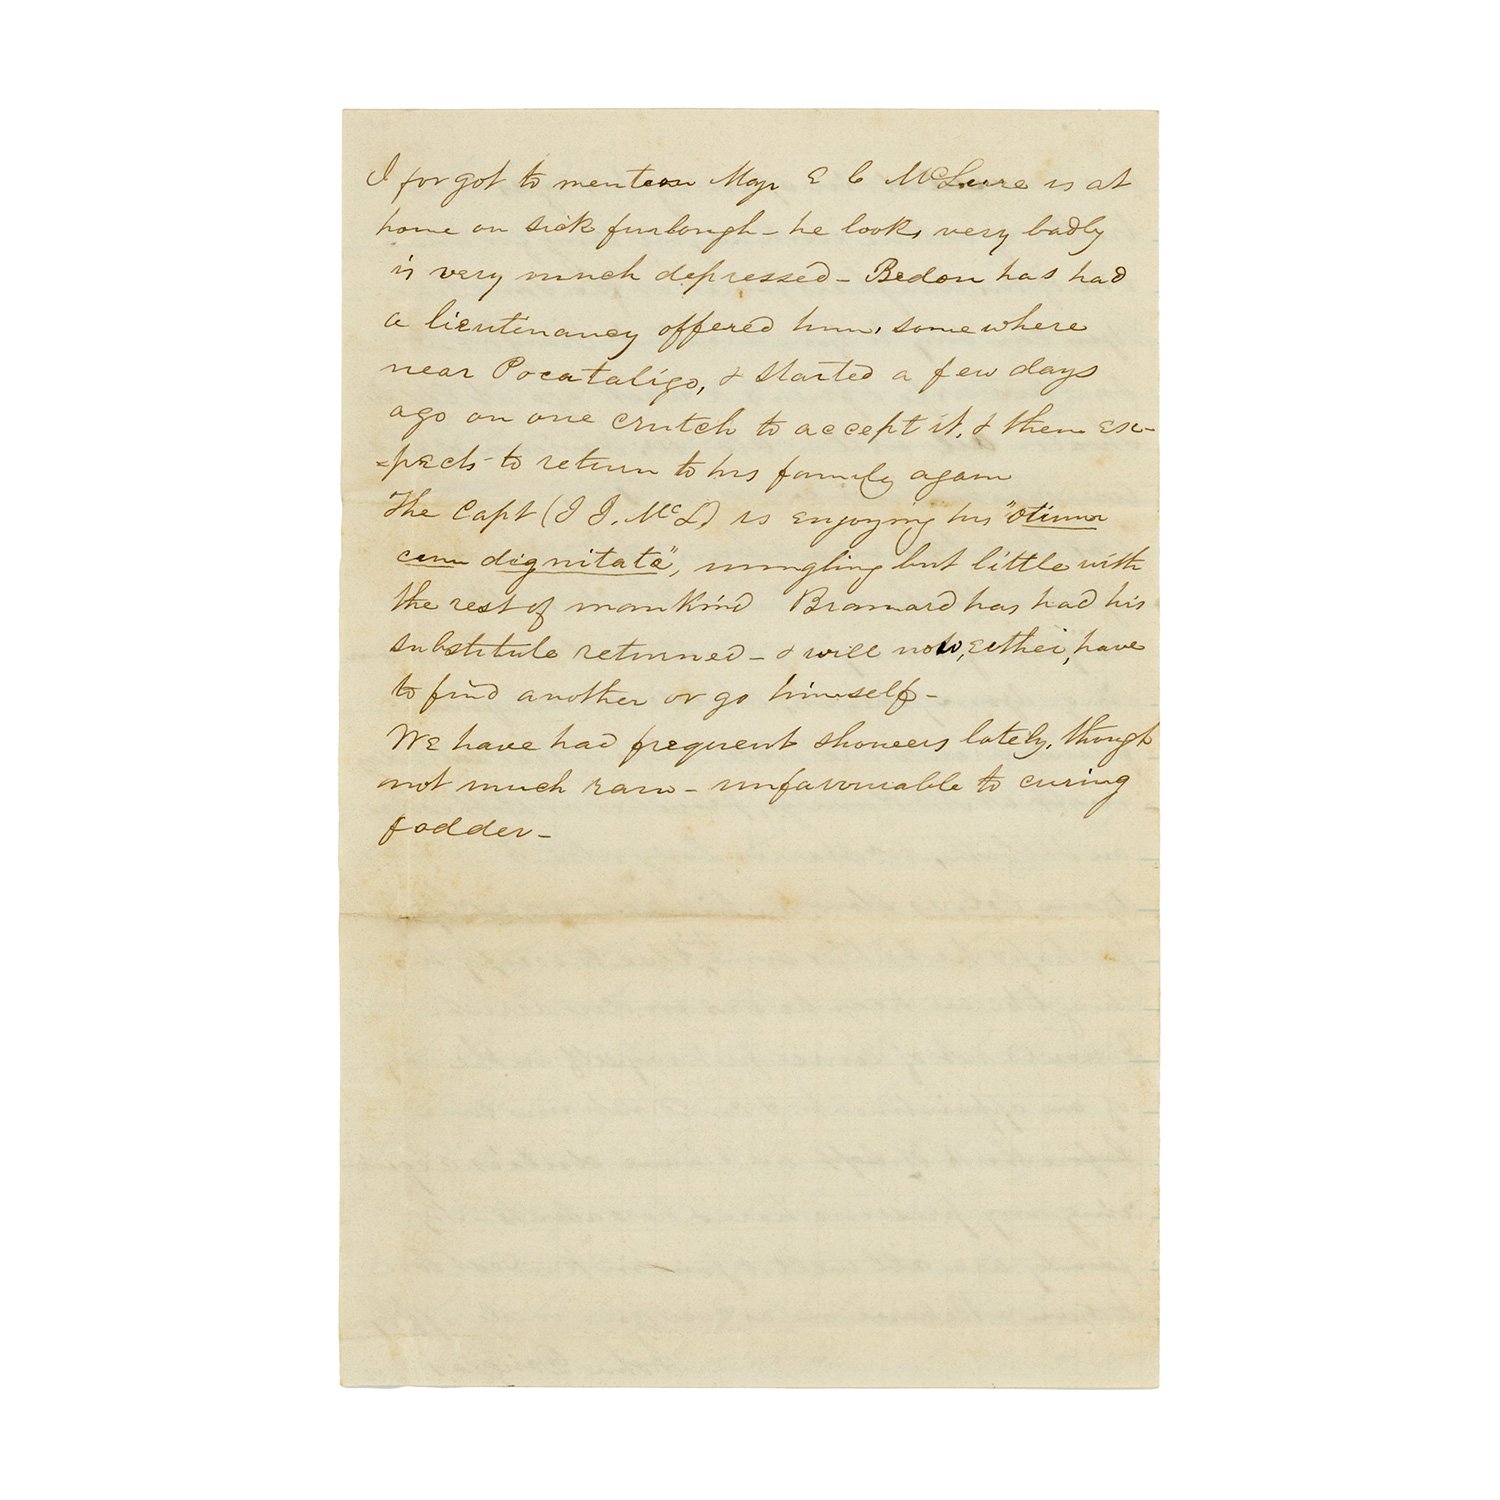 I forgot to mention Majr E C McLure is at
home on sick furlough – he looks very badly
is very much depressed – Bedon has had
a lieutinancy offered him, somewhere
near Pocataligo, & started a few days
ago on one crutch to accept it, & then ex-
-pects to return to his family again
The Capt (J J. McL) is enjoying his "otium
cum dignitate", mingling but little with
the rest of mankind Brainard has had his
substitute returned – & will now, either, have
to find another or go himself –
We have had frequent showers lately, though
not much rain – unfavourable to curing
fodder –